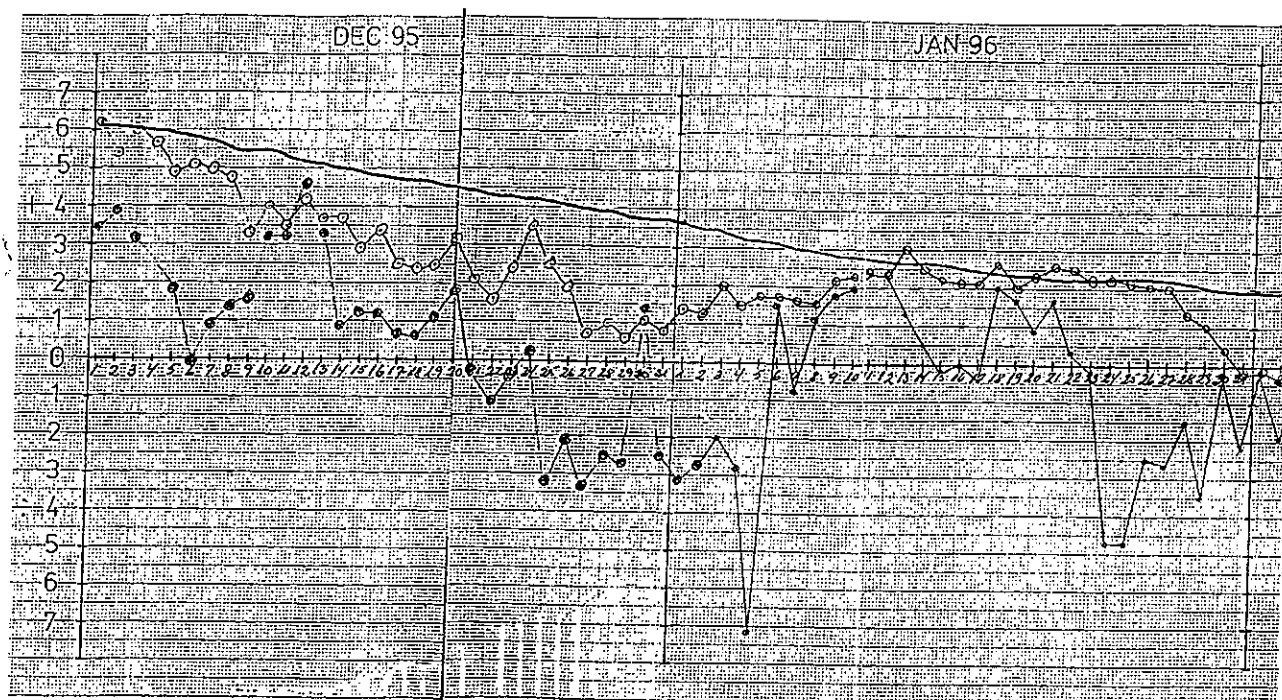 DEC 95
JAN 96
7
6
5
+ 4
3
2
1
0
1 2 3 4 5 6 7 8 9 10 11 12 13 14 15 16 17 18 19 20 21 22 23 24 25 26 27 28 29 30 31 1 2 3 4 5 6 7 8 9 10 11 12 13 14 15 16 17 18 19 20 21 22 23 24 25 26 27 28 29 30 31
1
2
3
4
5
6
7